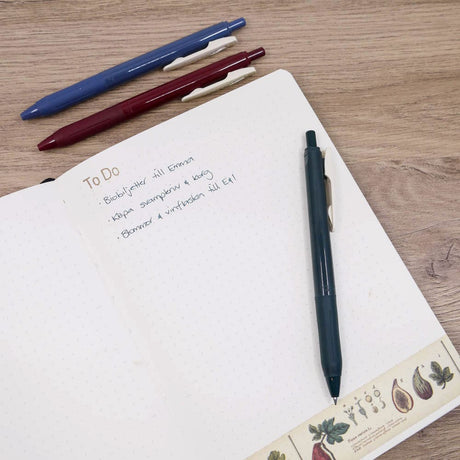 To Do
· Biobiljetter till Emma
· Köpa svampkniv & korg
· Blommor & vinflaskan till E&I